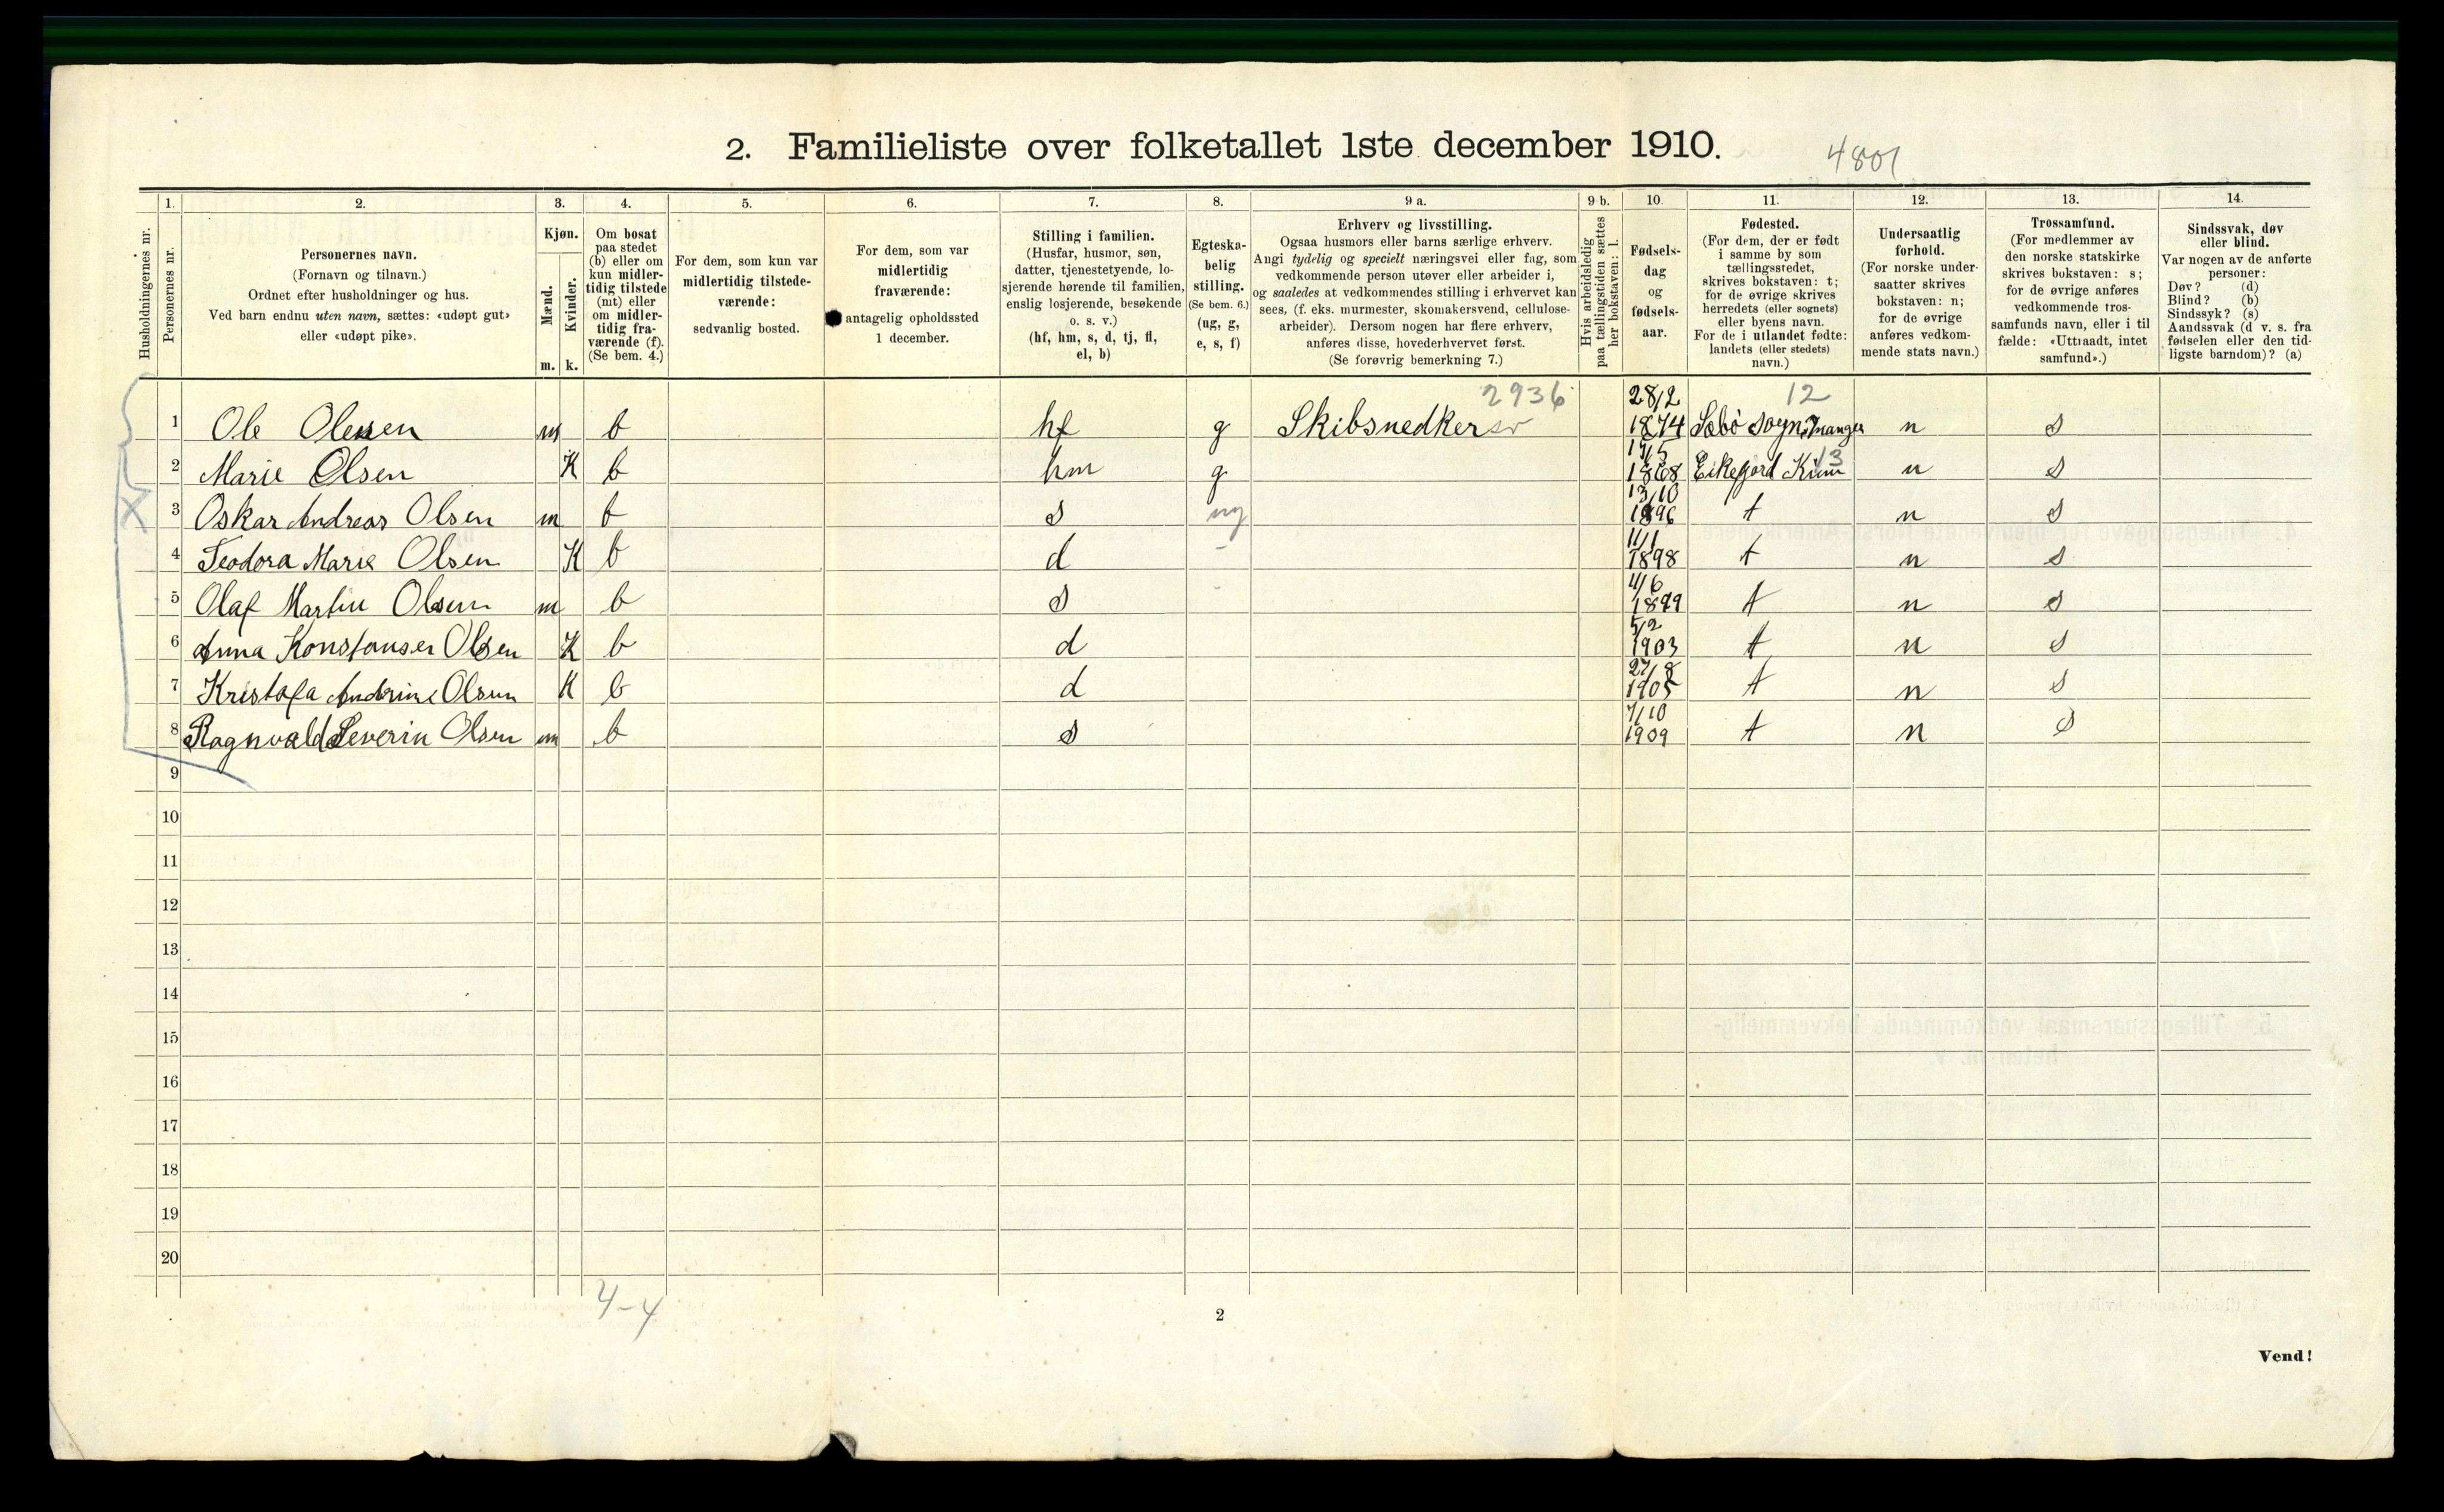 2. Familieliste over folketallet 1ste december 1910.
4801
Husholdningernes nr.
1. Personernes nr.
2. Personernes navn.
(Fornavn og tilnavn.)
Ordnet efter husholdninger og hus.
Ved barn endnu uten navn, sættes: «udøpt gut»
eller «udøpt pike».
3. Kjøn.
Mænd. m.
Kvinder. k.
4. Om bosat
paa stedet
(b) eller om
kun midler-
tidig tilstede
(mt) eller
om midler-
tidig fra-
værende (f).
(Se bem. 4.)
5. For dem, som kun var
midlertidig tilstede-
værende:
sedvanlig bosted.
6. For dem, som var
midlertidig
fraværende:
antagelig opholdssted
1 december.
7. Stilling i familien.
(Husfar, husmor, søn,
datter, tjenestetyende, lo-
sjerende hørende til familien,
enslig losjerende, besøkende
o. s. v.)
(hf, hm, s, d, tj, fl,
el, b)
8. Egteska-
belig
stilling.
(Se bem. 6.)
(ug, g,
e, s, f)
9 a. Erhverv og livsstilling.
Ogsaa husmors eller barns særlige erhverv.
Angi tydelig og specielt næringsvei eller fag, som
vedkommende person utøver eller arbeider i,
og saaledes at vedkommendes stilling i erhvervet kan
sees, (f. eks. murmester, skomakersvend, cellulose-
arbeider). Dersom nogen har flere erhverv,
anføres disse, hovederhvervet først.
(Se forøvrig bemerkning 7.)
9 b. Hvis arbeidsledig
paa tællingstiden sættes
her bokstaven: l.
10. Fødsels-
dag
og
fødsels-
aar.
11. Fødested.
(For dem, der er født
i samme by som
tællingsstedet,
skrives bokstaven: t;
for de øvrige skrives
herredets (eller sognets)
eller byens navn.
For de i utlandet fødte:
landets (eller stedets)
navn.)
12. Undersaatlig
forhold.
(For norske under-
saatter skrives
bokstaven: n;
for de øvrige
anføres vedkom-
mende stats navn.)
13. Trossamfund.
(For medlemmer av
den norske statskirke
skrives bokstaven: s;
for de øvrige anføres
vedkommende tros-
samfunds navn, eller i til-
fælde: «Uttraadt, intet
samfund».)
14. Sindssvak, døv
eller blind.
Var nogen av de anførte
personer:
Døv? (d)
Blind? (b)
Sindssyk? (s)
Aandssvak (d v. s. fra
fødselen eller den tid-
ligste barndom)? (a)
2936 12
1 Ole Olsen m b hf g Skibsnedker sv 28/2 1874 Sæbö Sogn, Manger n s
2 Marie Olsen K b hm g 1868 Eikefjord Kinn 13 n s
3 Oskar Andreas Olsen m b s ug 13/10 1896 t n s
4 Teodora Marie Olsen K b d - 11/1 1898 t n s
5 Olaf Martin Olsen m b s - 4/6 1899 t n s
6 Anna Konstanse Olsen K b d 5/2 1903 t n s
7 Kristofa Andrine Olsen K b d 27/8 1905 t n s
8 Ragnvald Severin Olsen m b s 7/10 1909 t n s
9
10
11
12
13
14
15
16
17
18
19
20
4-4
2
Vend!